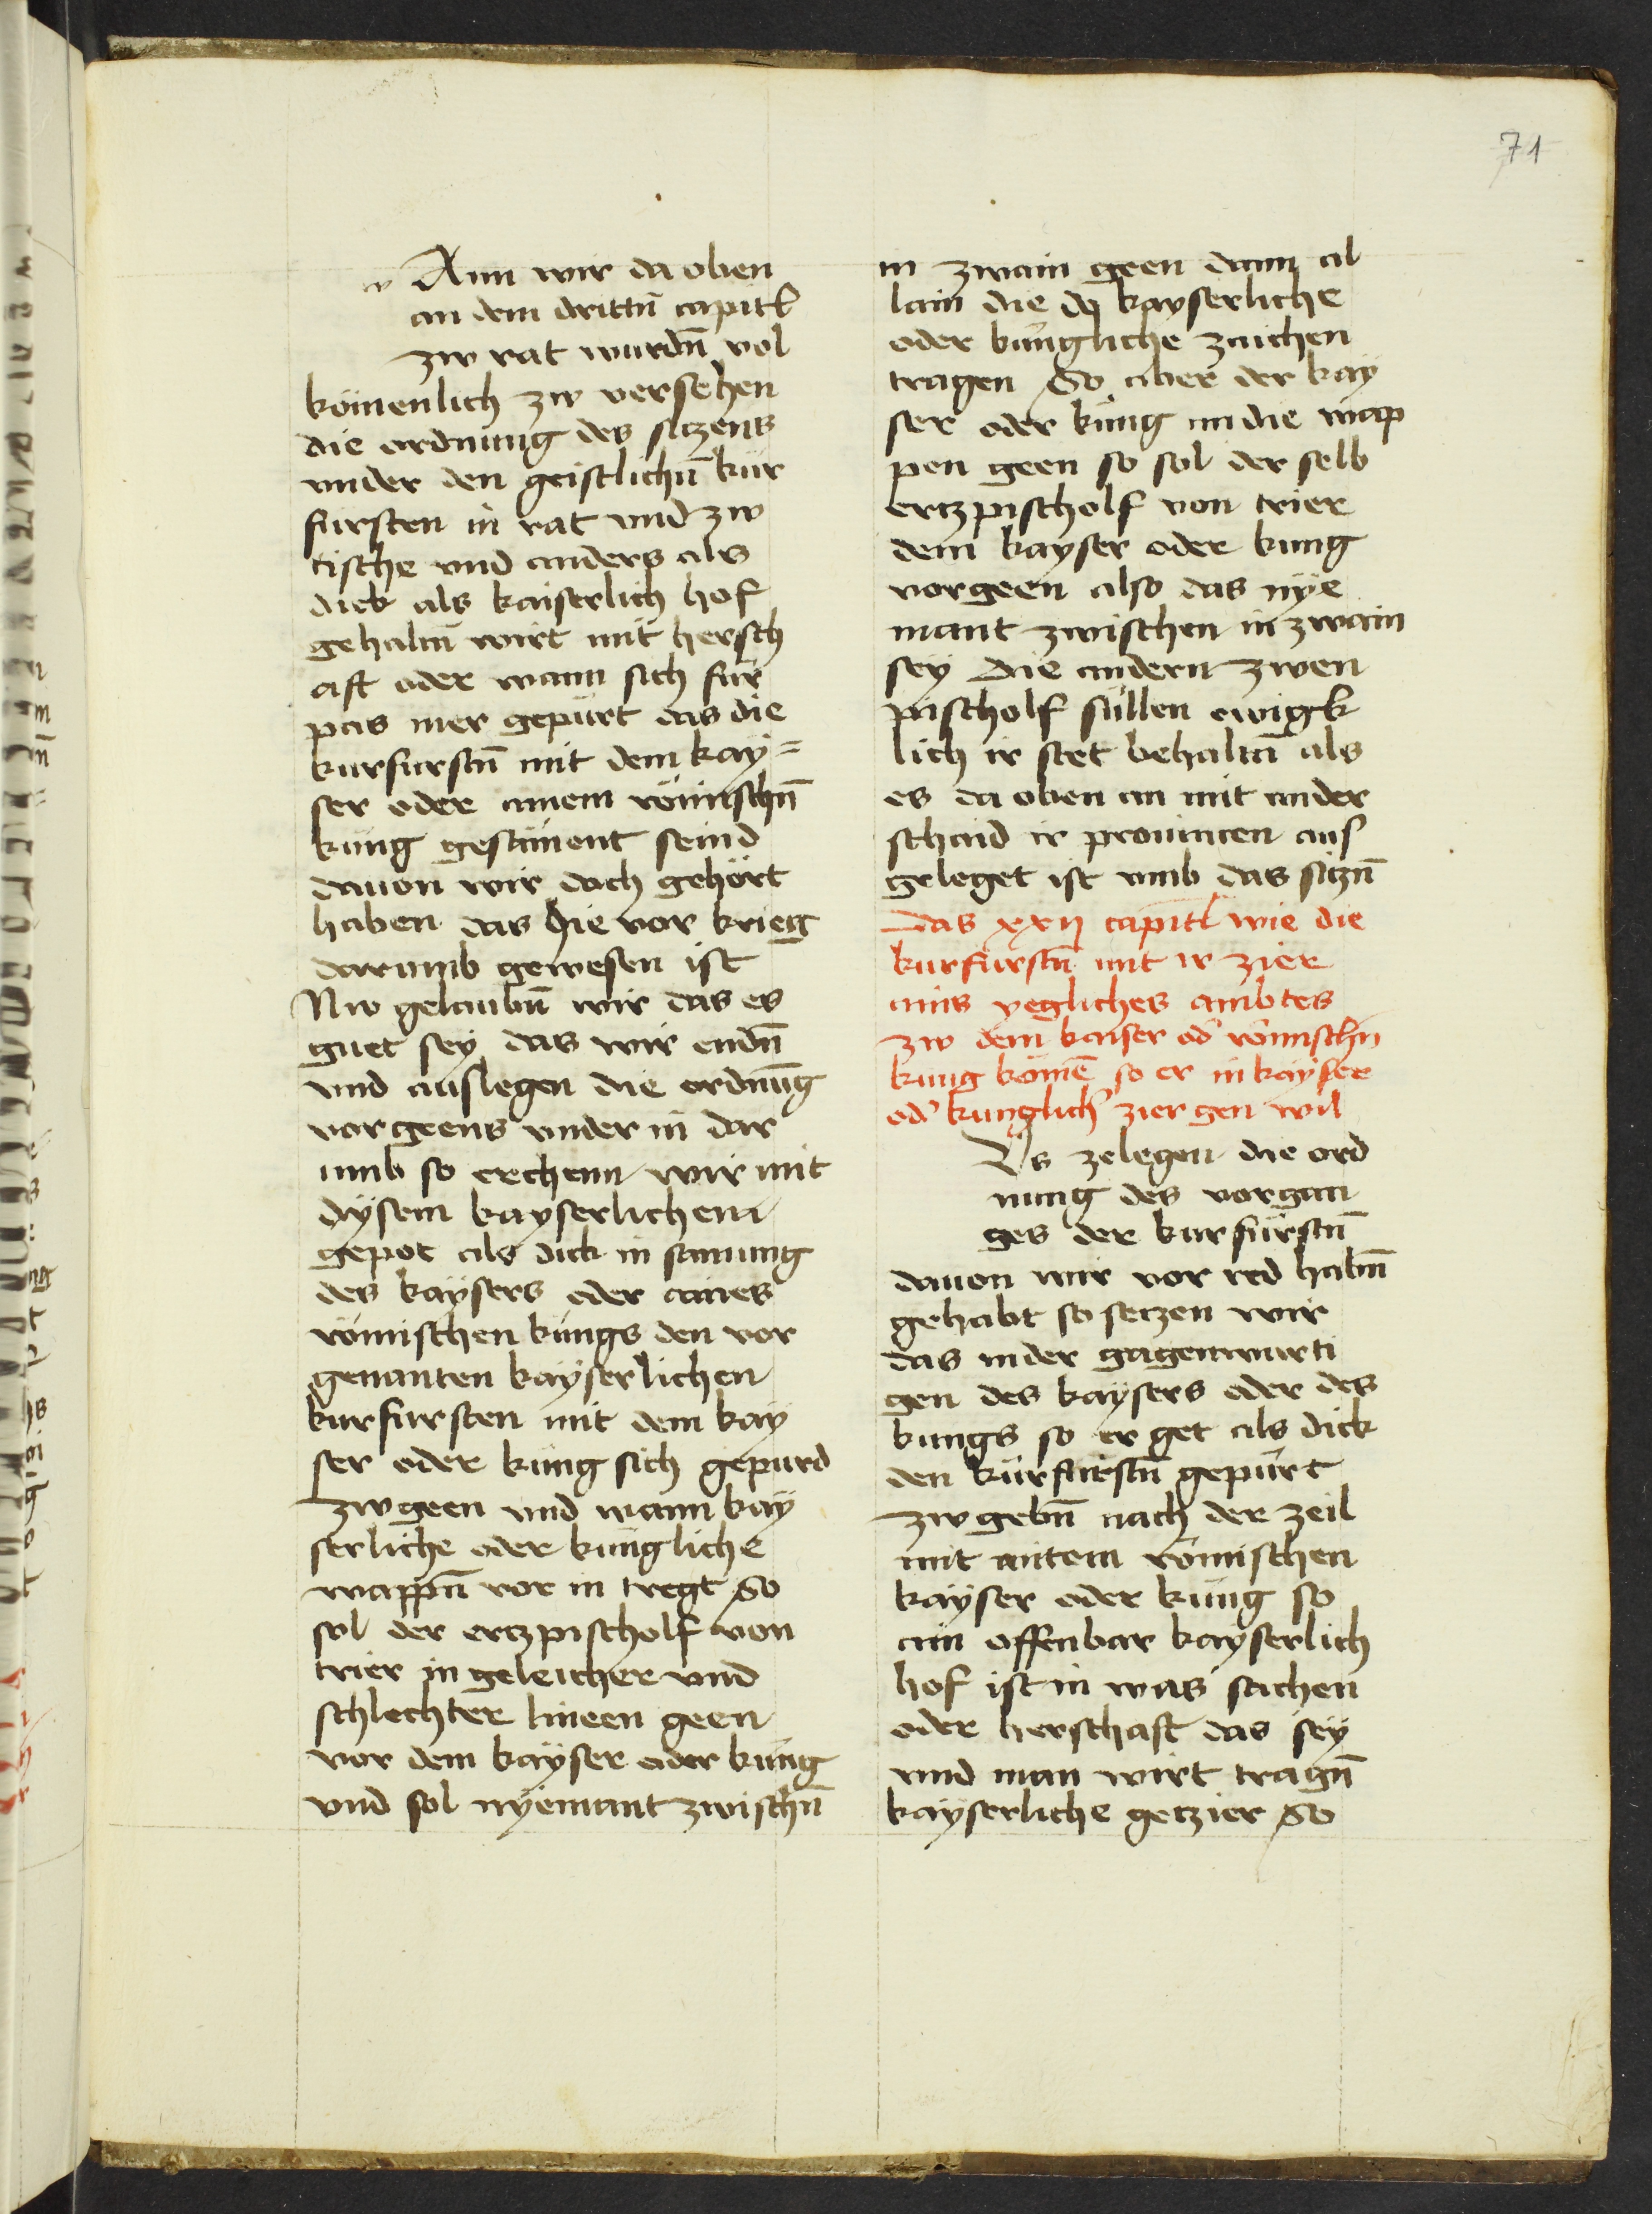 71
w Ann wir da oben
an dem drittn̄ capitl
zw rat wurdn̄ vol
kömenlich zw versehen
die ordnung des siczens
vnder den geistlichn̄ kür
fursten in rat vnd zw
tische vnd anders als
dick als kaiserlich hof
gehaltn̄ wirt mit hersch
aft oder wann sich für
pas mer gepürt das die
kurfurstn̄ mit dem kay=
ser oder ainem römischn̄
küng gesament seind
dauon wir doch gehört
haben das hie vor krieg
darumb gewesen ist
Nw gelaubn̄ wir das es
guet sey das wir endn̄
vnd auslegen die ordnūg
vorgeens vnder in dar
umb so erchenn wir mit
dysem kayserlichem
gepot als dick in samung
des kaysers oder aines
römischen küngs den vor
genanten kayserlichen
kurfursten mit dem kay
ser oder küng sich gepurd
zwgeen vnd wann kay
serliche oder küngliche
wappn̄ vor in tregt So
sol der erczpischolf von
trier in geleicher vnd
schlechter lineen geen
vor dem kayser oder küng
vnd sol nyemant zwischn̄
in zwain geen dann al
lain die dy kayserliche
oder küngliche zaichen
tragen So aber der kay
ser oder küng an die wap
pen geen so sol der selb
erczpischolf von trier
dem kayser oder kung
vorgeen also das nye
mant zwischen in zwain
sey die andern zwen
pischolf süllen ewigk
lich ir stet behaltn̄ als
es da oben an mit ander
schaid ir prouincen aus
geleget ist vmb das siczn̄
Das xxij capitl wie die
kurfürstn̄ mit ir zier
ains yegliches ambtes
zw dem kaiser od̾ römischn̄
kung kömē so er in kayser
od̾ kunglich̾ zier gen wil
Vs zelegen die ord
nung des vorgan
ges der kurfürstn̄
dauon wir vor red habn̄
gehabt so seczen wir
das in der gagenwurti
gen des kaysers oder des
kungs so er get als dick
den kürfürstn̄ gepürt
zw gebn̄ nach der zeil
mit aitem römischen
kayser oder küng so
ain offenbar kayserlich
hof ist in was sachen
oder herschaft das sey
vnd man wirt tragn̄
kayserliche geczier So